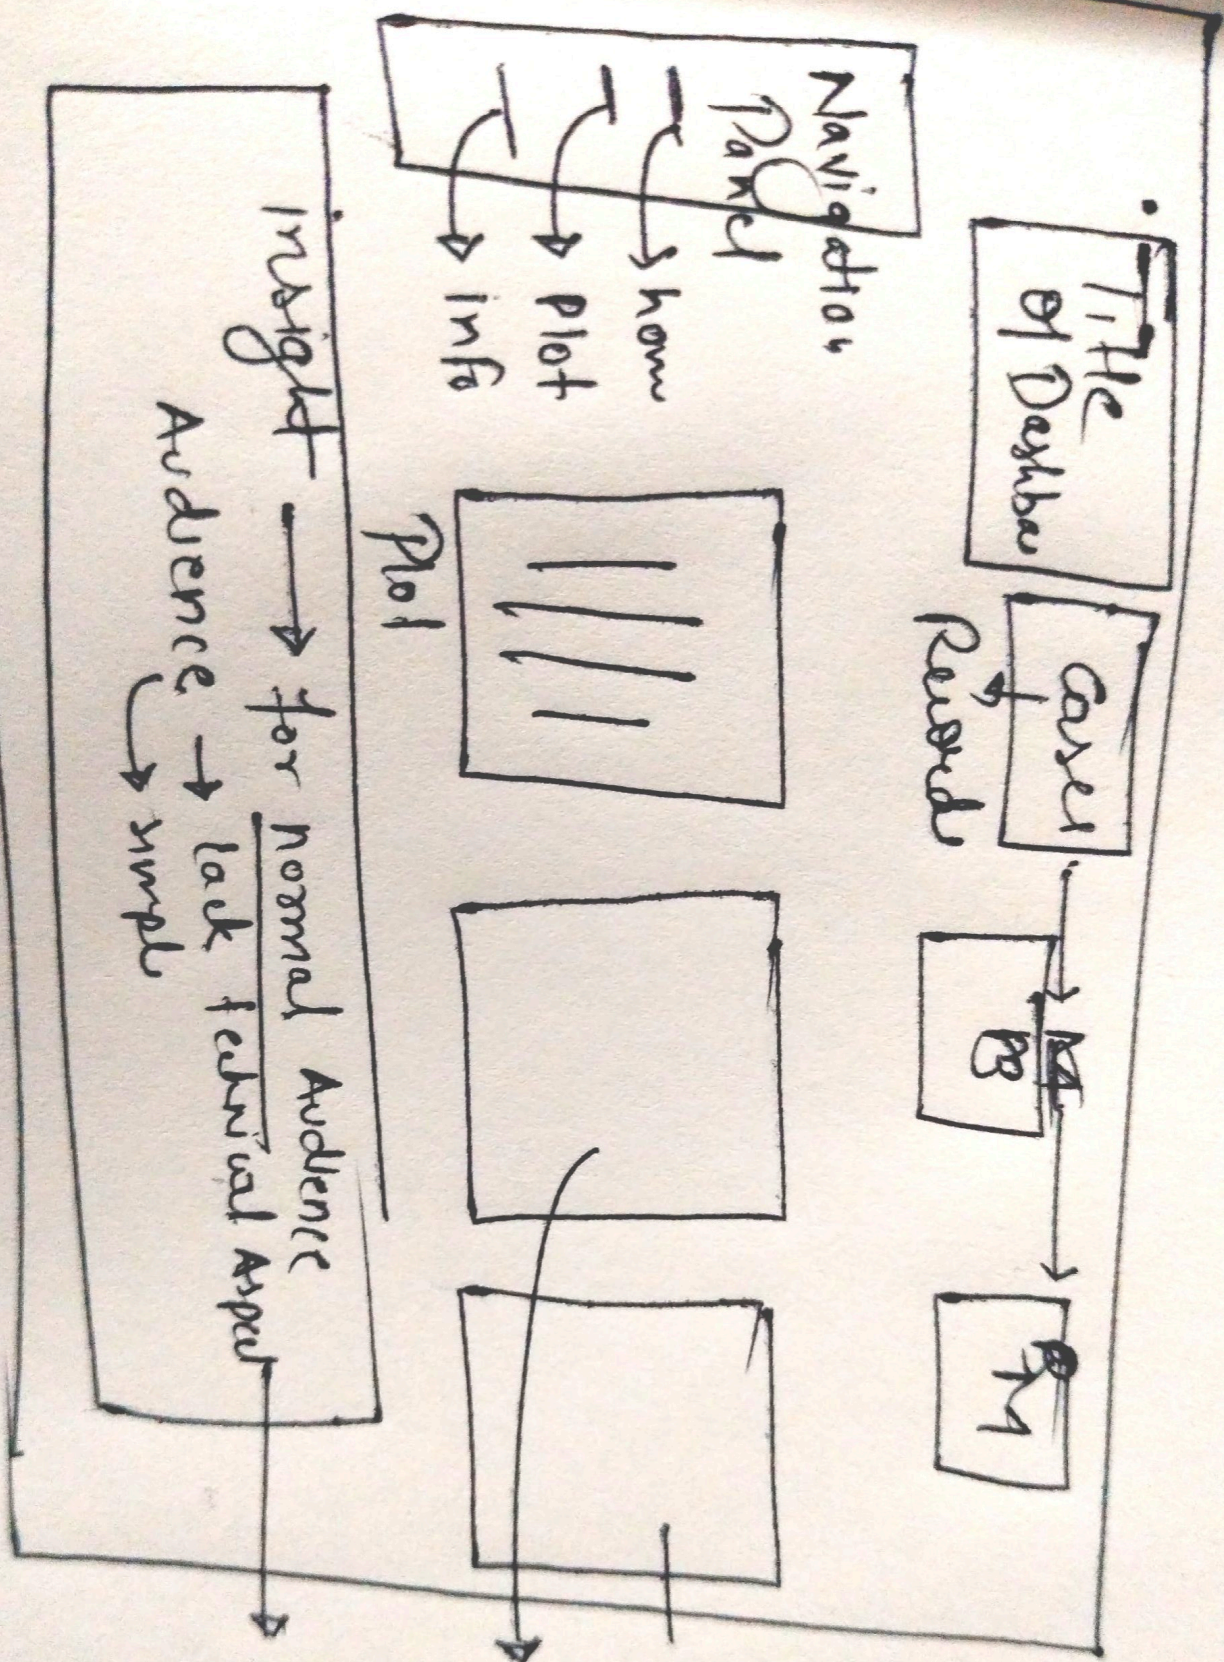 Title
of Dashba
Cases
Record
PB
TM
Navigation
Panel
hom
plot
info
Plot
Insight → for normal Audience
Audience → lack technical Aspect
simple